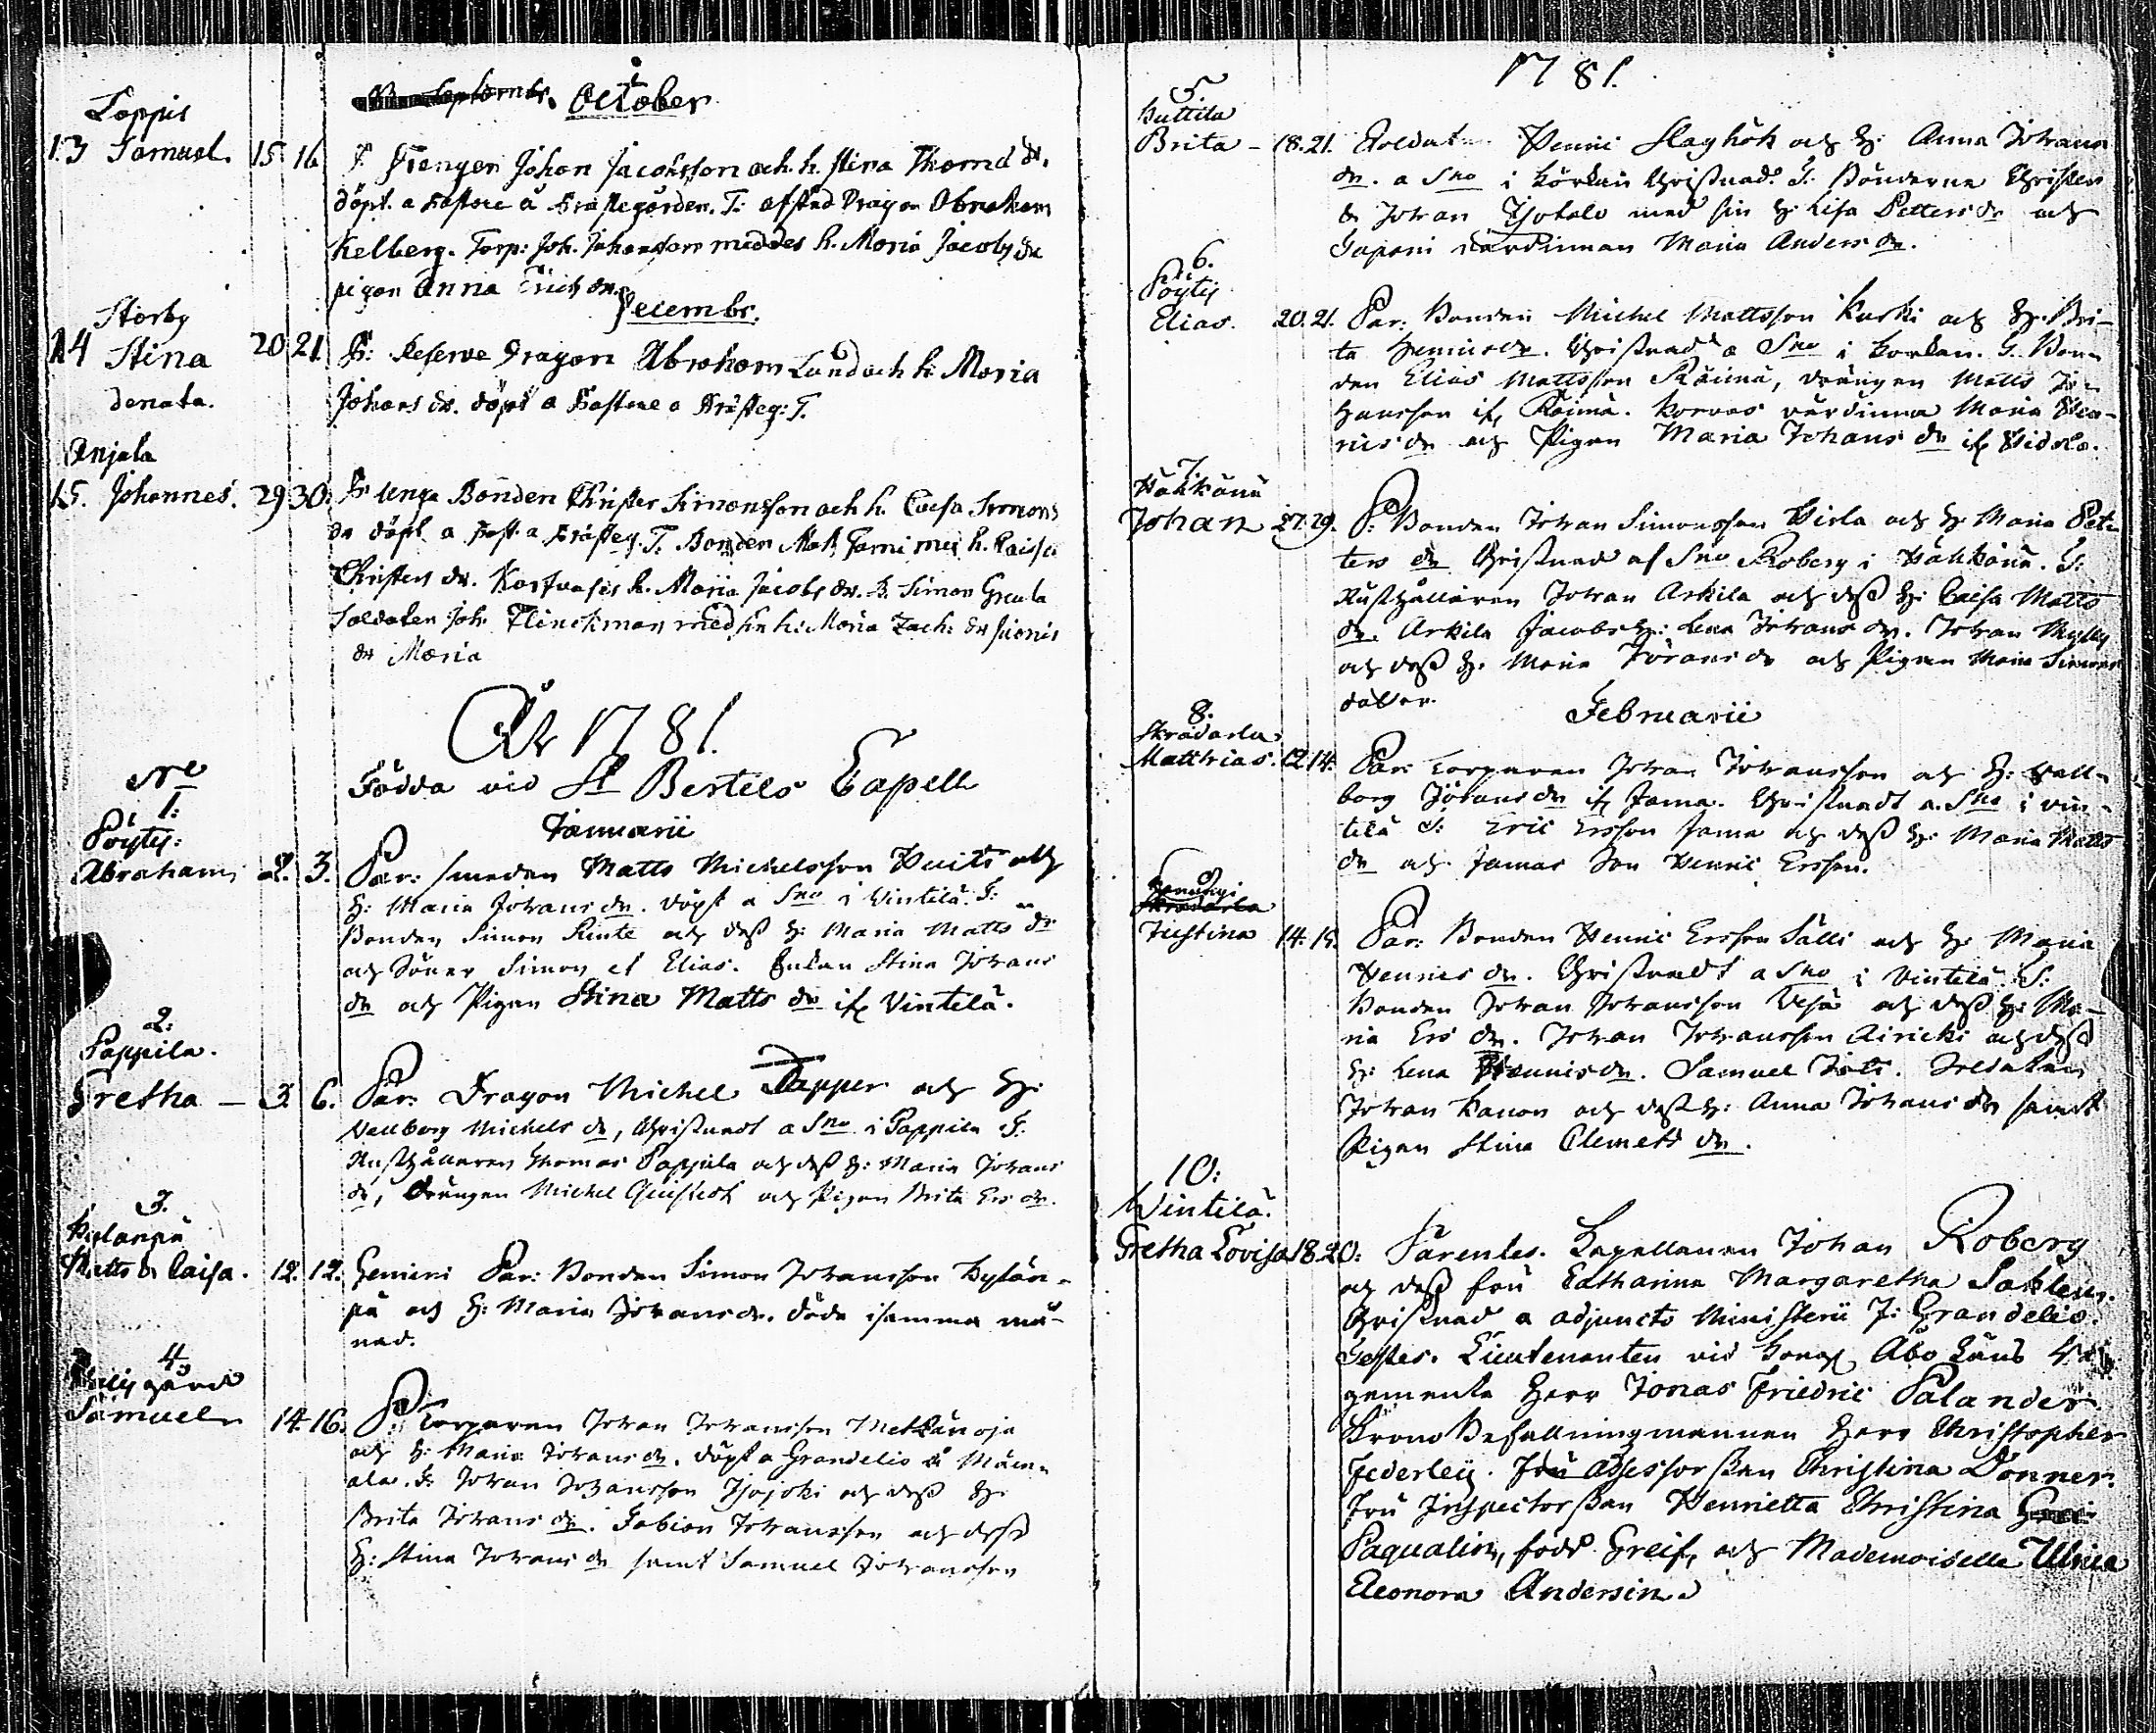 October
Loppis
13 Samuel. 15 16 F. Drengen Johan Jacobsson och h. Stina Thomæ dr.
döpt. a Pastore å Prästegården. T: afsked Dragon Abraham
Kelberg. Torp: Joh. Johansson med des h. Maria Jacobs dr
pigan Anna Erichs dr.
Decembr.
Storby
14 Stina 20 21 Reserve Dragon Abraham Lund och h. Maria
denata. Johans dr. döpt a Pastore a Prästeg: T.
Anjala
15. Johannes. 29 30. unga Bonden Christer Simonsson och h. Caisa Simons
dr döpt a Past. a Prästeg. T. Bonden Matts Tarni med h. Caisa
Christers dr. h. Maria Jacobs dr. B. Simon
Soldaten Joh. Flinckman med sin h. Maria Zach: dr
dr Maria
År 1781.
Födda vid St Bertels Capell
Januarii
No
1:
Pöytis:
Abraham 2. 3. Par: smeden Matts Michelsson och
H: Maria Johans dr. döpt a Sno i Vintelä. T:
Bonden Simon och dess H: Maria Matts dr
och Söner Simon et Elias. Enkan Stina Johans
dr och Pigan Stina Matts dr if. Vintelä.
2:
Pappila.
Gretha – 3. 6. Par: Dragon Michel Tapper och H:
Vallborg Michels dr, Christnadt a Sno i Pappila T:
Rusthållaren Thomas Pappila och dess H: Maria Johans
dr, Drängen Michel och Pigan Brita Ers dr.
3.
Kylänpä
Matts & Caisa. 12. 12. Gemini Par: Bonden Simon Johansson Kylän-
pä och H: Maria Johans dr. döda i samma må-
nad.
4.
Samuel 14. 16. P: Torparen Johan Johansson Metsänoja
och H: Maria Johans dr. döpt a Grandelio å
T: Johan Johansson och dess H:
Brita Johans dr. Fabian Johansson och dess
H: Stina Johans dr samt Samuel Johansson
1781.
5.
Huttila
Brita – 18. 21. Soldat Henric Slaghök och H: Anna Johans
dr. a Sno i Körkan Christnad. T. Bönderne Christer
& Johan med sin H: Lisa Petters dr och
värdinnan Maria Anders dr.
6.
Pöytis
Elias. 20. 21. Par: Bonden Michel Mattsson Kurki och H: Bri-
ta Henrics dr. Christnad a Sno i Körkan. T. Bon-
den Elias Mattsson Räimä, drängen Matts Jo-
hansson if. Räimä. värdinna Maria Hen-
rics dr och Pigan Maria Johans dr if.
7.
Hakkänä
Johan 27. 29. P: Bonden Johan Simonsson och H: Maria Pet-
ters dr Christnad af Sno Roberg i Hakkänä. T:
Rusthållaren Johan Arkila och dess H: Caisa Matts
dr. Arkila Jacobs H: Lena Johans dr. Johan
och dess H: Maria Jörans dr och Pigan Maria Simons
dotter.
Februarii
8.
Skrädarla
Matthias. 12. 14. Par: Torparen Johan Johansson och H: Vall-
borg Jörans dr if. Jama. Christnadt a. Sno i Vin-
telä T: Eric Ersson Jama och dess H: Maria Matts
dr och Jamas Son Henric Ersson.
9
Justina 14. 15. Par: Bonden Henric Ersson Sälli och H: Maria
Henrics dr. Christnadt a Sno i Vintelä. T:
Bonden Johan Johansson och dess H: Ma-
ria Ers dr. Johan Johansson Airicki och dess
H: Lena Hennis dr. Samuel. Soldaten
Johan Kanon och dess H: Anna Johans dr samt
Pigan Stina Clemets dr.
10:
Wintilä.
Gretha Lovisa 18. 20: Parentes. Capellanen Johan Roberg
och dess fru Catharina Margaretha
Christnad a adjuncto Ministerii J: Grandelio.
Testes. Lieutenanten vid Kongl Åbo Läns Re-
gemente Herr Jonas Friedric Palander.
Krono Befallningsmannen Herr Christopher
Federley. Fru Assessorskan Christina Donner.
Fru Inspectorskan Henrietta Christina
Paqualin, född Greif, och Mademoiselle Ulrica
Eleonora Andersin.